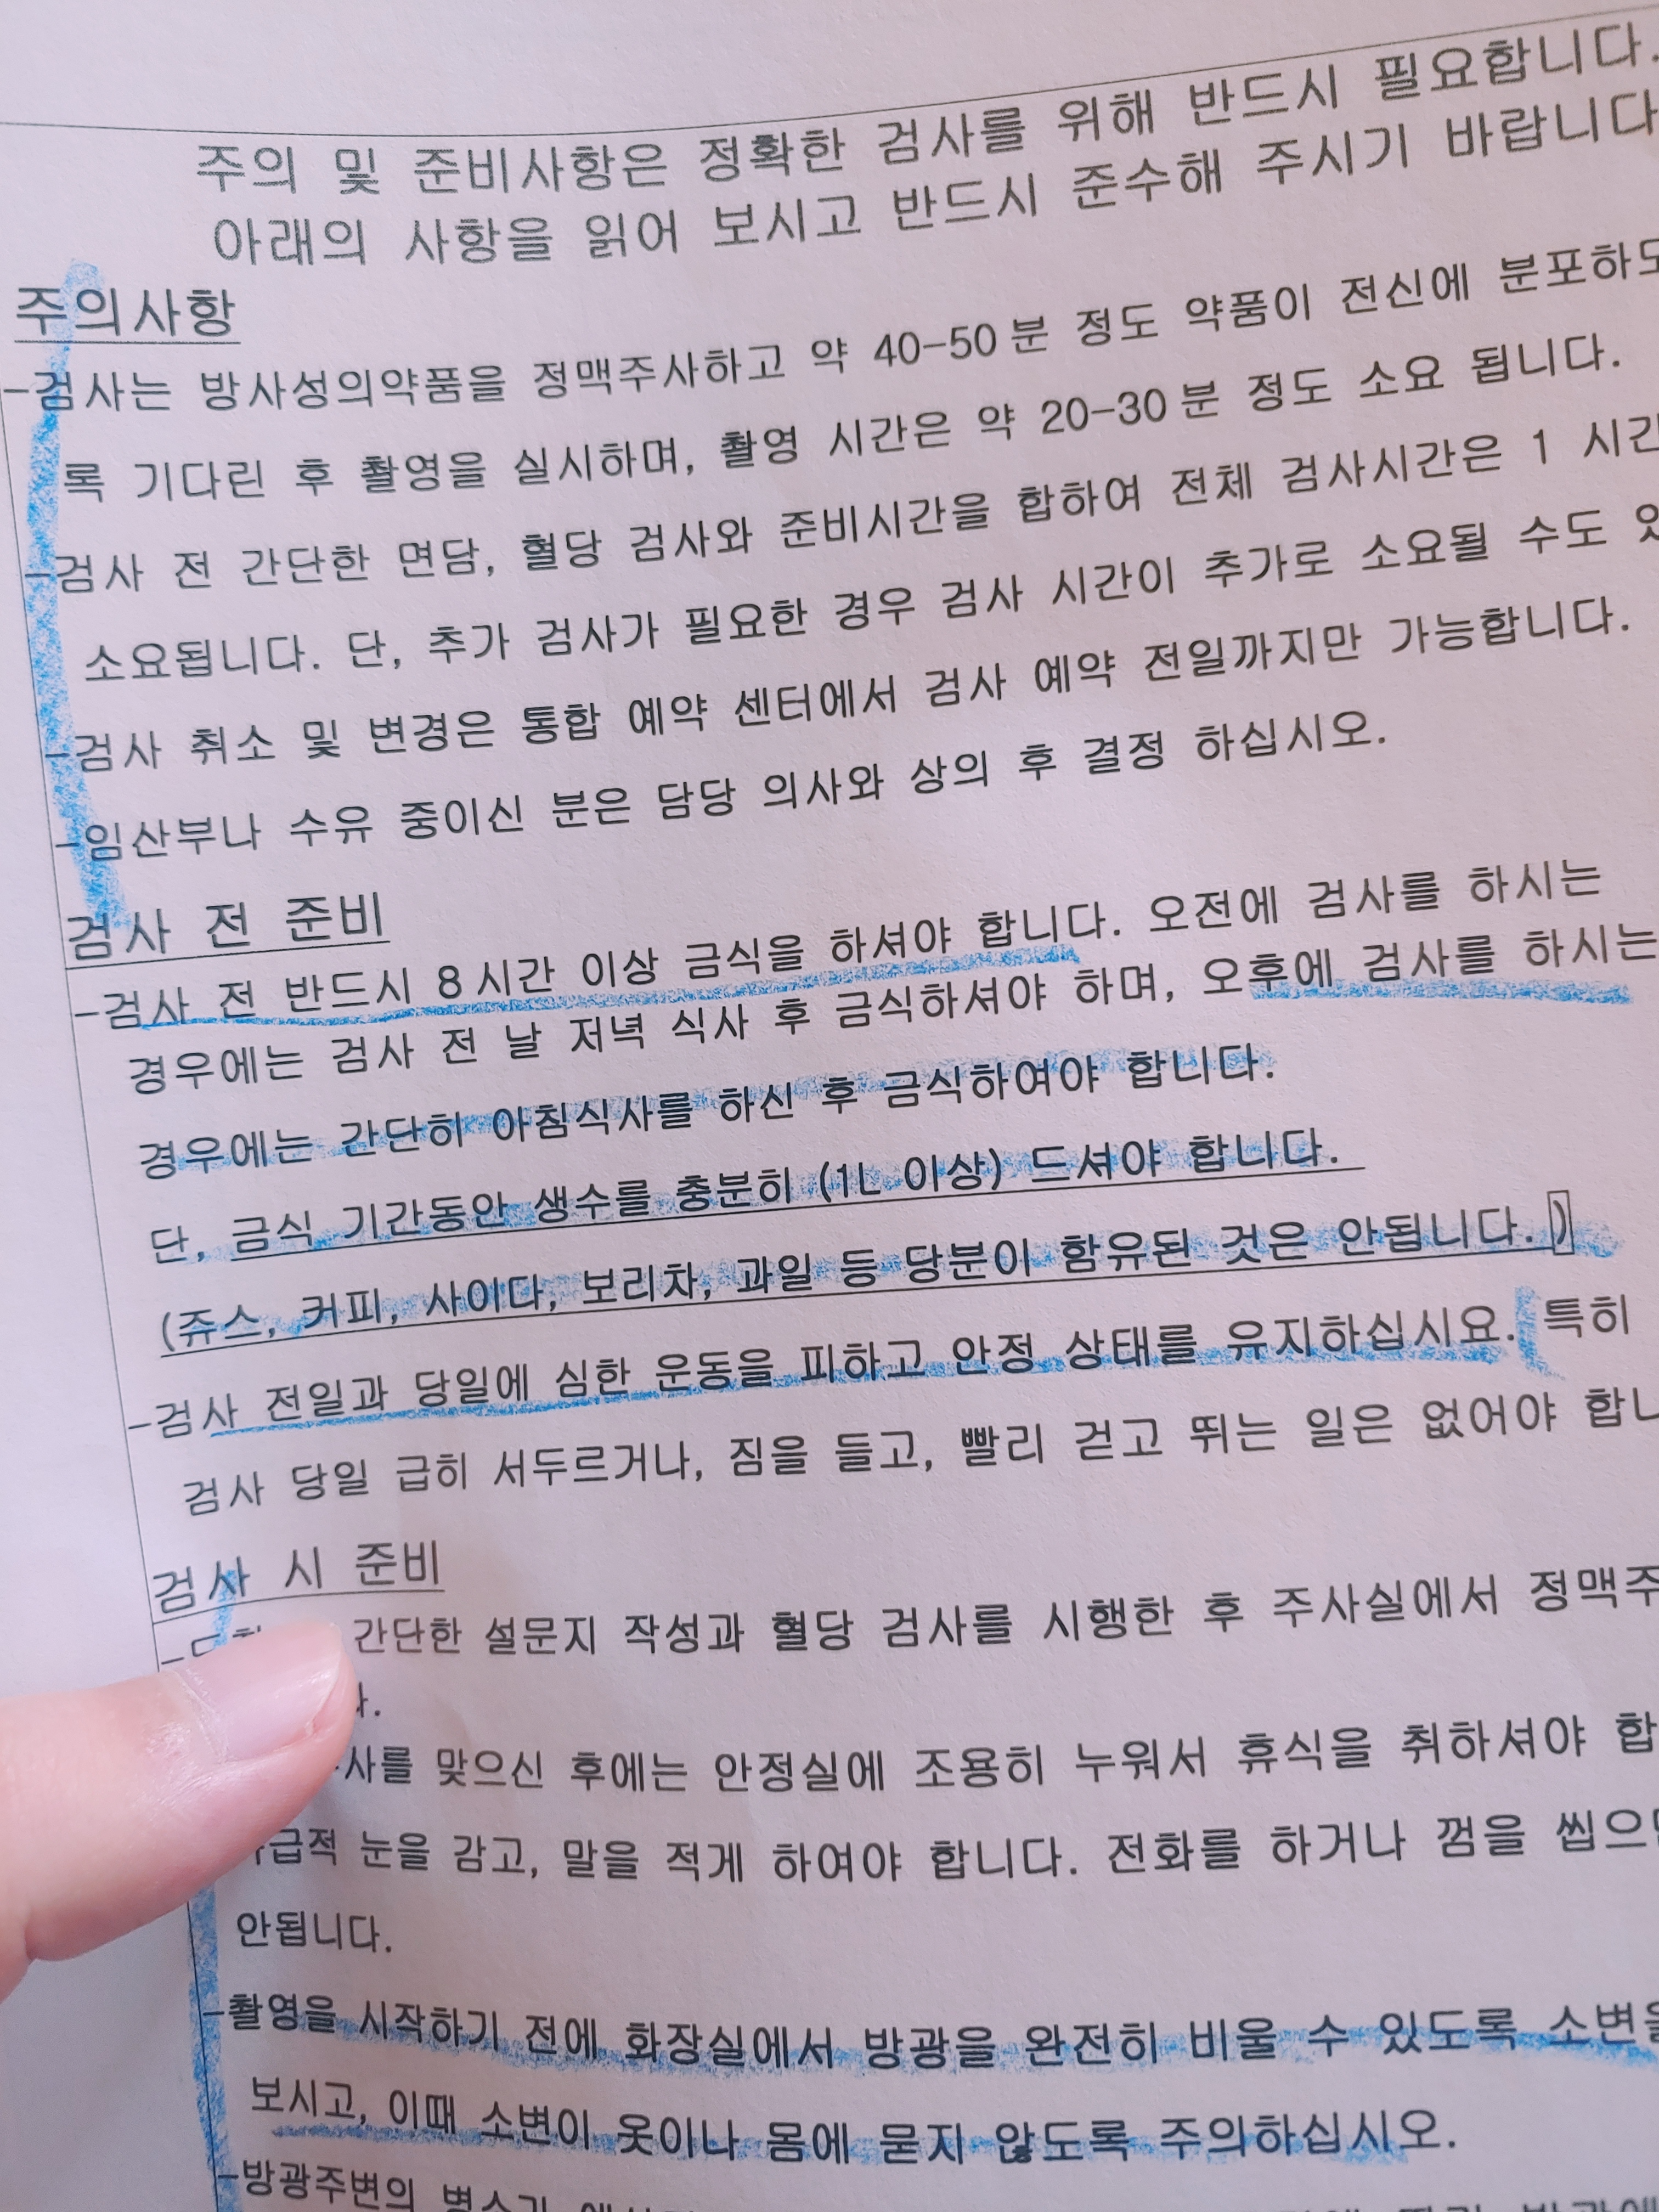 주의 및 준비사항은 정확한 검사를 위해 반드시 필요합니다.
아래의 사항을 읽어 보시고 반드시 준수해 주시기 바랍니다
주의사항
-검사는 방사성의약품을 정맥주사하고 약 40-50분 정도 약품이 전신에 분포하도
록 기다린 후 촬영을 실시하며, 촬영 시간은 약 20-30분 정도 소요 됩니다.
-검사 전 간단한 면담, 혈당 검사와 준비시간을 합하여 전체 검사시간은 1 시간
소요됩니다. 단, 추가 검사가 필요한 경우 검사 시간이 추가로 소요될 수도
-검사 취소 및 변경은 통합 예약 센터에서 검사 예약 전일까지만 가능합니다.
-임산부나 수유 중이신 분은 담당 의사와 상의 후 결정 하십시오.
검사 전 준비
-검사 전 반드시 8시간 이상 금식을 하셔야 합니다. 오전에 검사를 하시는
경우에는 검사 전 날 저녁 식사 후 금식하셔야 하며, 오후에 검사를 하시는
경우에는 간단히 아침식사를 하신 후 금식하여야 합니다.
단, 금식 기간동안 생수를 충분히 (1L 이상) 드셔야 합니다.
(쥬스, 커피, 사이다, 보리차, 과일 등 당분이 함유된 것은 안됩니다.)
-검사 전일과 당일에 심한 운동을 피하고 안정 상태를 유지하십시요. 특히
검사 당일 급히 서두르거나, 짐을 들고, 빨리 걷고 뛰는 일은 없어야
검사 시 준비
간단한 설문지 작성과 혈당 검사를 시행한 후 주사실에서
맞으신 후에는 안정실에 조용히 누워서 휴식을 취하셔야
눈을 감고, 말을 적게 하여야 합니다. 전화를 하거나 껌을
안됩니다.
-촬영을 시작하기 전에 화장실에서 방광을 완전히 비울 수 있도록 소변을
보시고, 이때 소변이 옷이나 몸에 묻지 않도록 주의하십시오.
-방광주변의